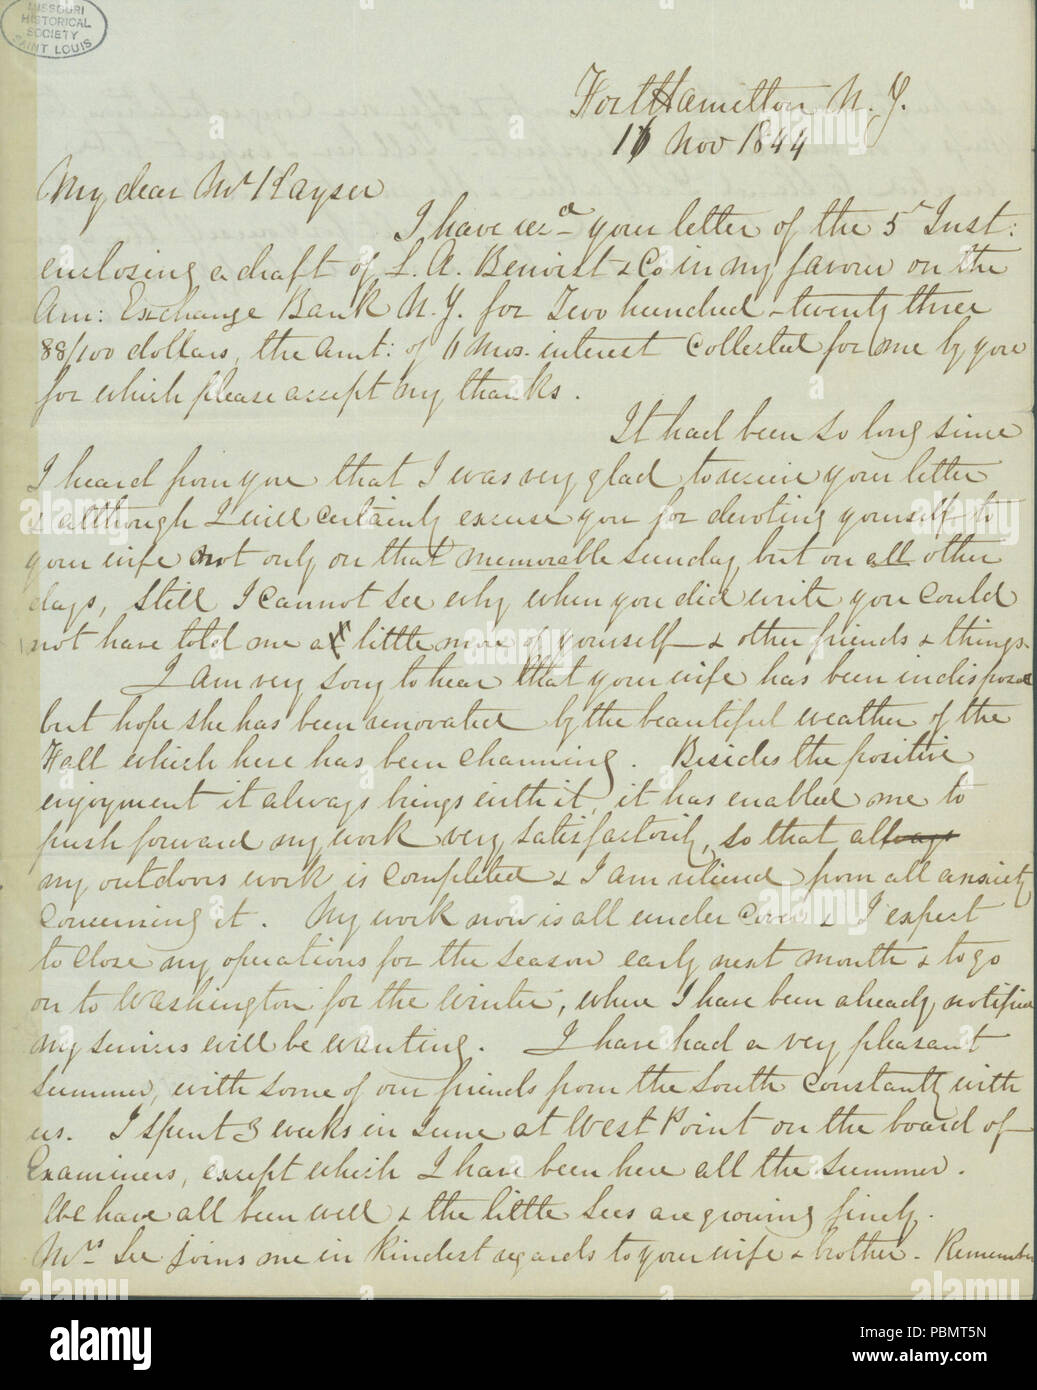 MISSOURI
HISTORICAL
SOCIETY
SAINT LOUIS
Fort Hamilton N. Y.
16 Nov 1844
My dear Mr Kayser
I have recd your letter of the 5th Inst:
enclosing a draft of L. A. Benoist & Co in my favour on the
Am: Exchange Bank N. Y. for Two hundred & twenty three
88/100 dollars, the amt: of 6 mos. interest collected for me by you
for which please accept my thanks.
It had been so long since
I heard from you that I was very glad to receive your letter
& although I will certainly excuse you for devoting yourself to
your wife not only on that memorable sunday but on all other
days, still I cannot see why when you did write you could
not have told me a little more of yourself & other friends & things.
I am very sorry to hear that your wife has been indisposed
but hope she has been renovated by the beautiful weather of the
Fall which here has been charming. Besides the positive
enjoyment it always brings with it, it has enabled me to
push forward my work very satisfactorily, so that all
my outdoors work is completed & I am relieved from all anxiety
concerning it. My work now is all under cover & I expect
to close my operations for the season early next month & to go
on to Washington for the winter, where I have been already notified
my services will be wanting. I have had a very pleasant
summer, with some of our friends from the South constantly with
us. I spent 3 weeks in June at West Point on the board of
Examiners, except which I have been here all the summer.
We have all been well & the little Lees are growing finely.
Mrs Lee joins me in kindest regards to your wife & brother. Remember
alamy
Image ID: PBMT5N
www.alamy.com